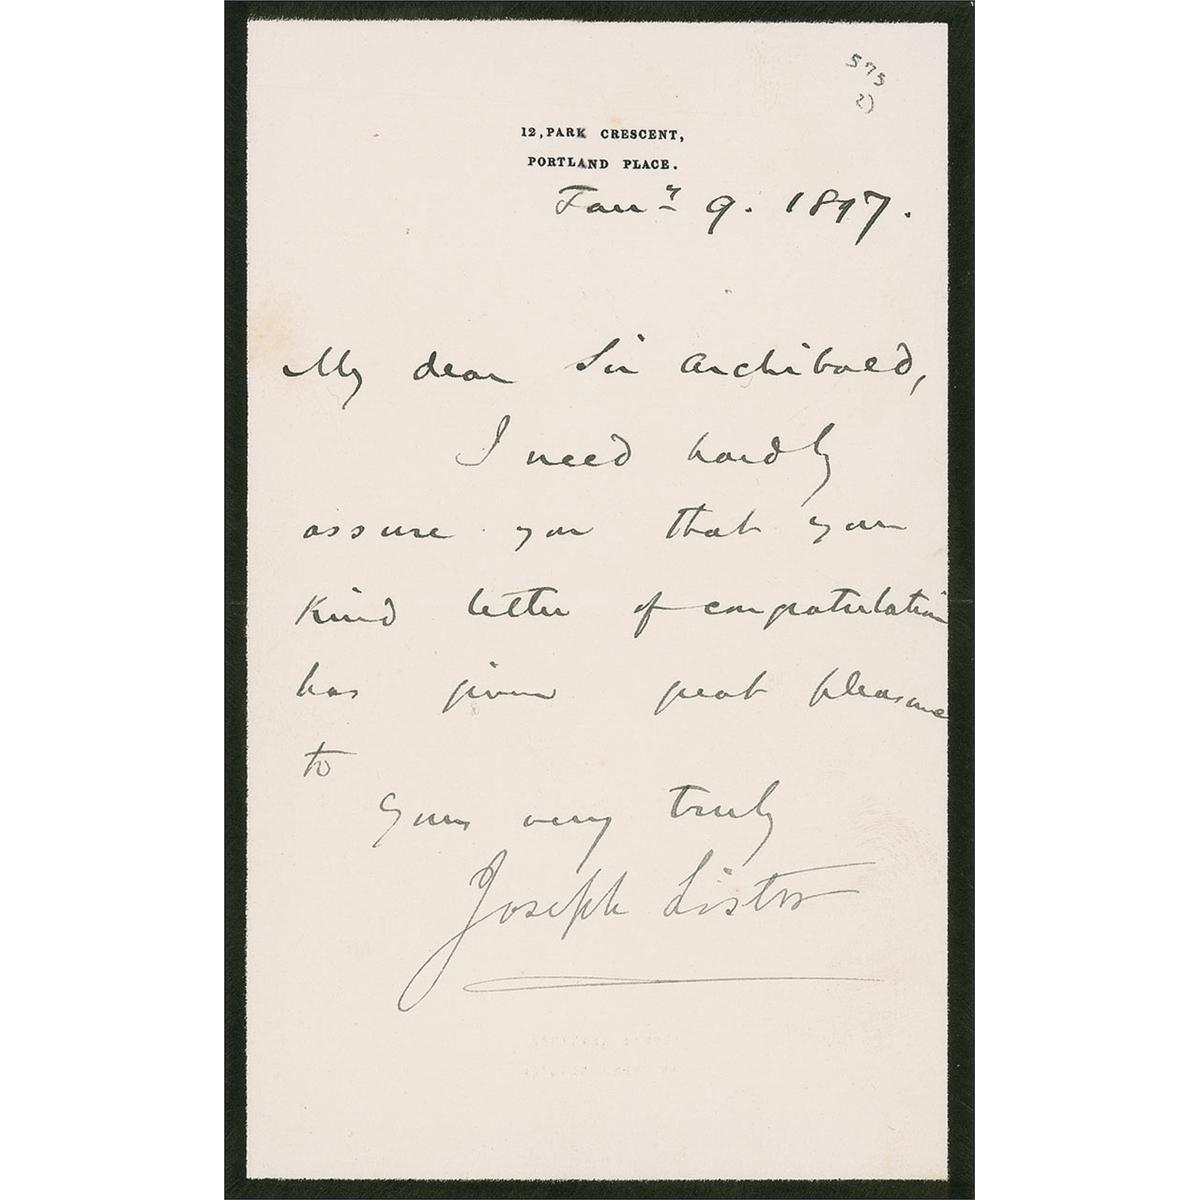 575
2)
12, PARK CRESCENT,
PORTLAND PLACE.
Jany 9. 1897.
My dear Sir Archibald,
I need hardly
assure you that your
kind letter of congratulation
has given great pleasure
to
Yours very truly
Joseph Lister